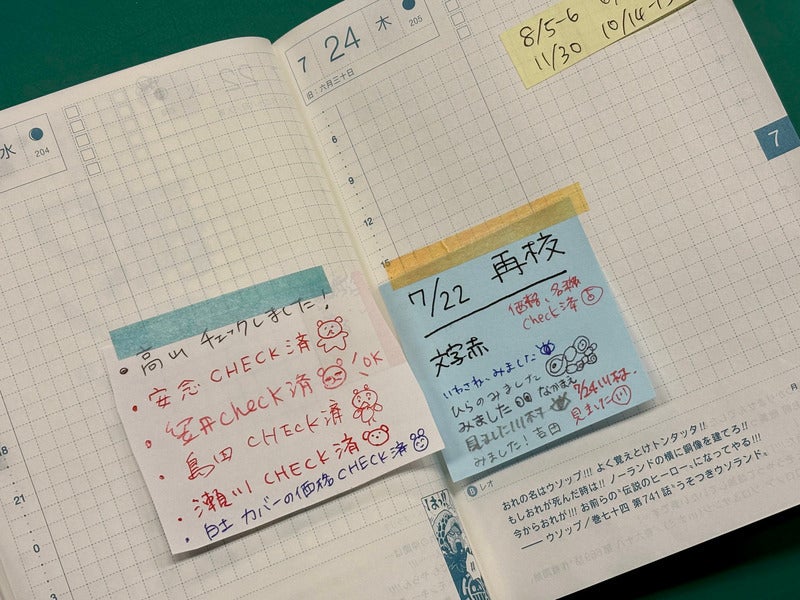 水
204
18
21
0
3
• 高山 チェックしました!
• 安念 CHECK済
• 安井check済 OK
• 島田 CHECK済
• 瀬川 CHECK済
• 白土 カバーの価格CHECK済
はっ!!
7
24
木
205
旧:六月三十日
6
9
12
15
8/5-6
11/30
10/14-15
7
7/22 再校
価格、名称
check済 吉
文字赤
いわさね、みました
ひらのみました
みました なかまえ
見ました!川村
みました!吉田
7/24 川村
見ました 川
月
レオ
おれの名はウソップ!!! よく覚えとけトンタッタ!!
もしおれが死んだ時は!! ノーランドの横に銅像を建てろ!!
今からおれが!!! お前らの“伝説のヒーロー”になってやる!!!
── ウソップ/巻七十四 第741話“うそつきウソランド”